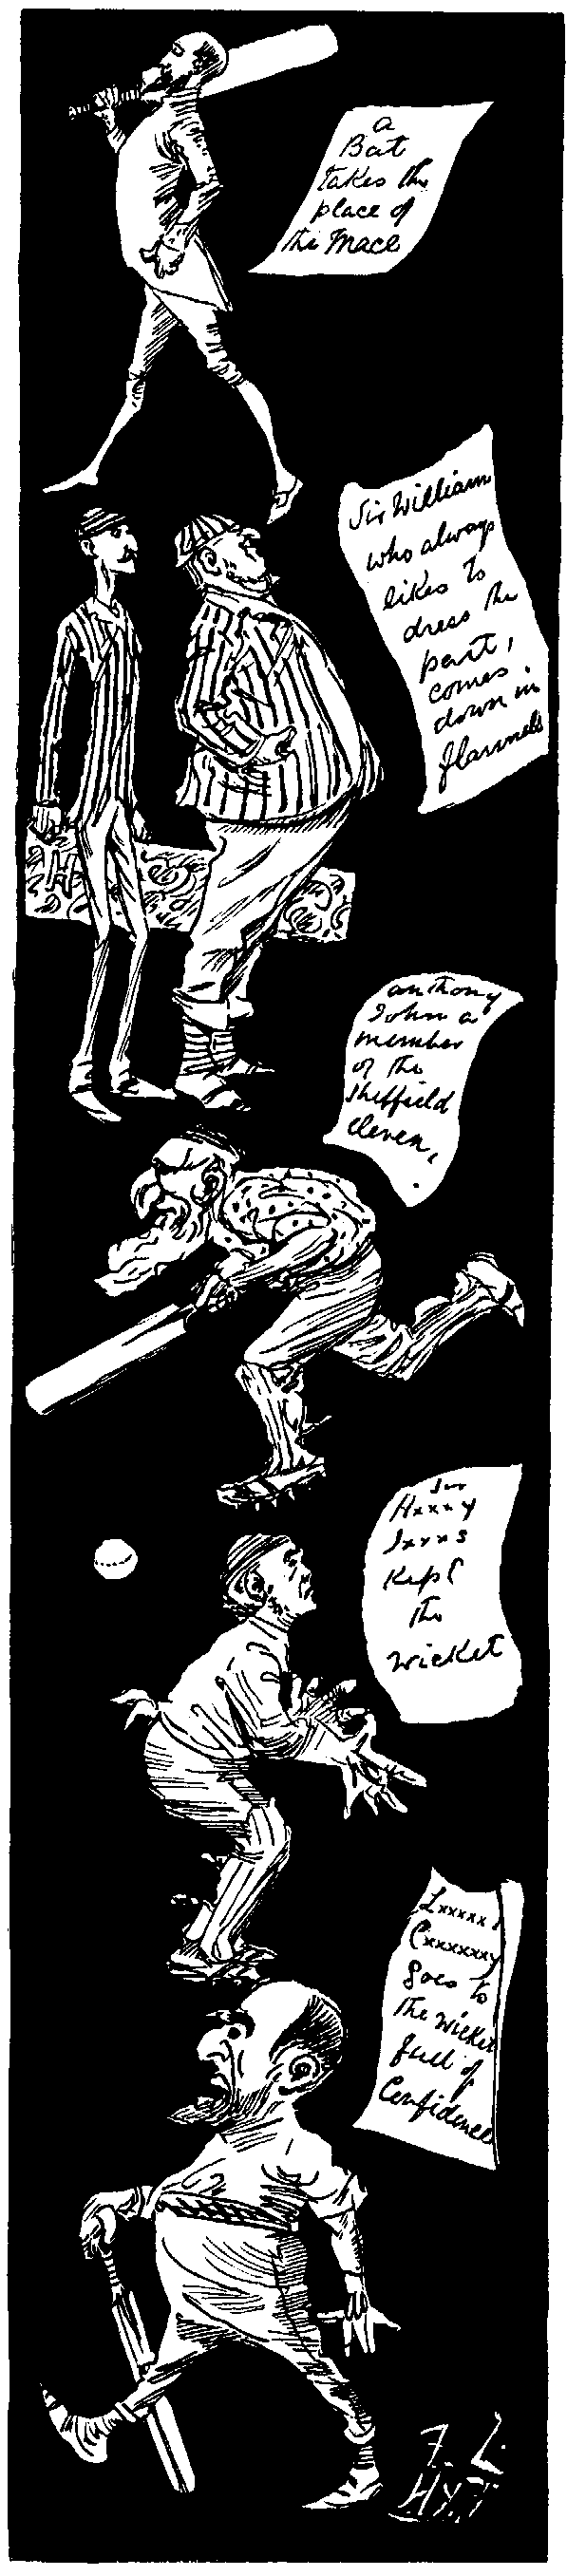 a
Bat
takes the
place of
the Mace
Sir William
who always
likes to
dress the
part,
comes
down in
flannels
H
anthony
John a
member
of the
Sheffield
eleven.
Sir
Hxxxy
Jxxxs
Kept
the
wicket
Lxxxxx
Cxxxxxxy
goes to
the wicket
full of
Confidence
F. L.